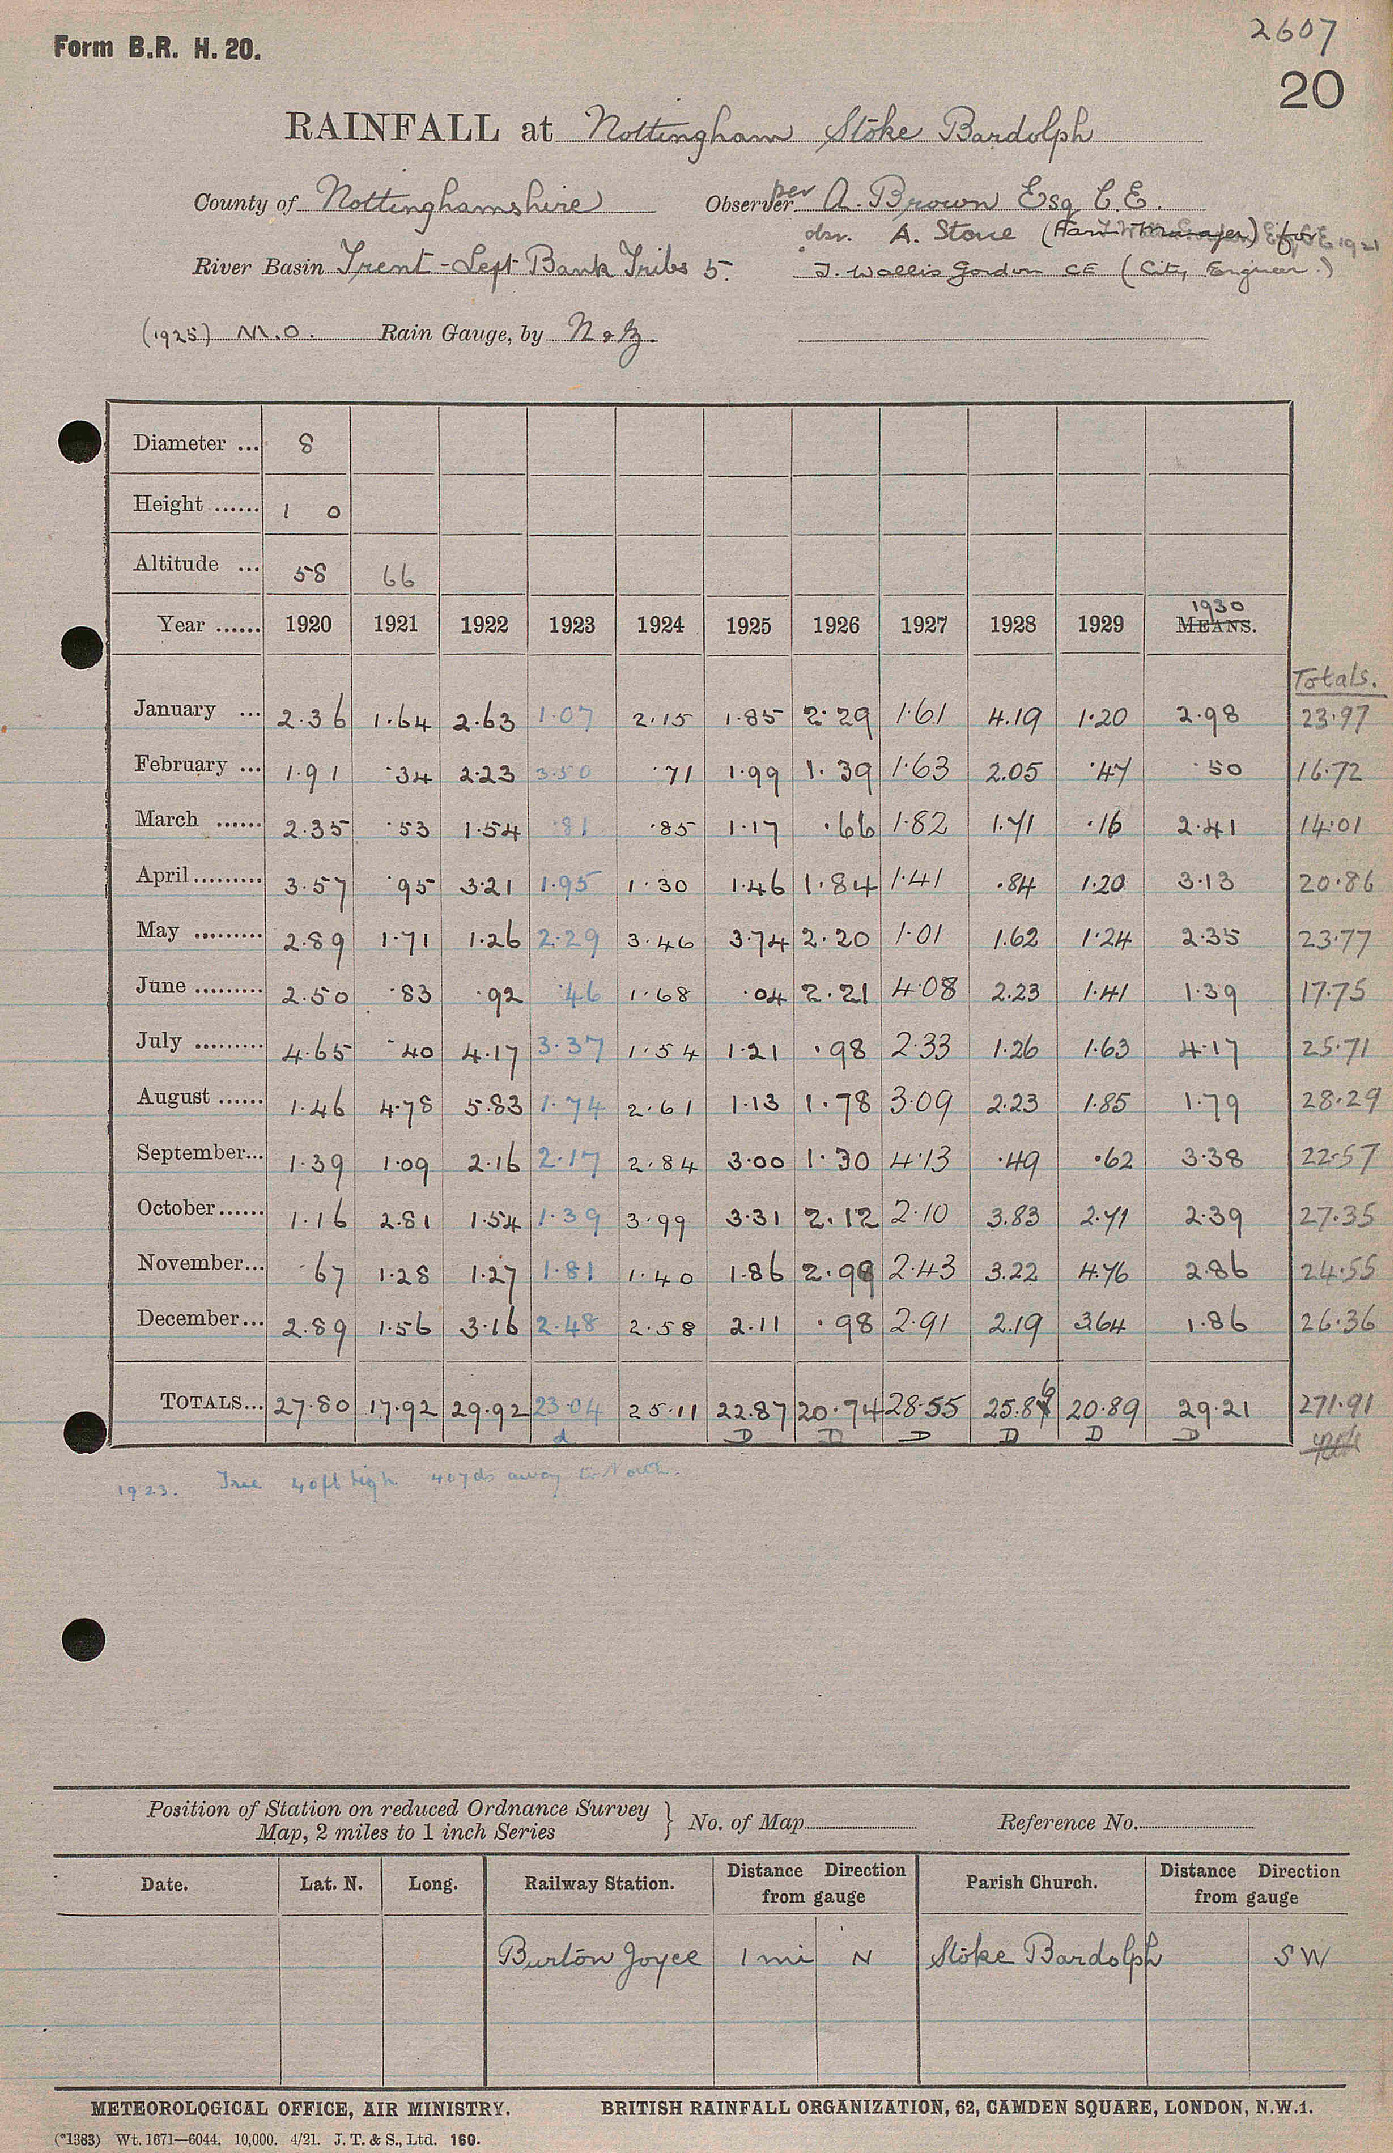 2607
Form B.R. H. 20.
20
RAINFALL at Nottingham Stoke Bardolph
County of Nottinghamshire Observer per A. Brown Esq C.E.
A. Stone (Farm Manager) for 1921
River Basin Trent - Left Bank Tribs 5. J. Wallis Gordon CE (City Engineer.)
(1925) M.O. Rain Gauge, by N & Z.
Diameter ... 8
Height ...... 1 0
Altitude ... 58 66
1930
Year ...... 1920 1921 1922 1923 1924 1925 1926 1927 1928 1929 MEANS.
Totals.
January ... 2.36 1.64 2.63 1.07 2.15 1.85 2.29 1.61 4.19 1.20 2.98 23.97
February ... 1.91 .34 2.23 3.50 .71 1.99 1.39 1.63 2.05 .47 .50 16.72
March ...... 2.35 .53 1.54 .81 .85 1.17 .66 1.82 1.71 .16 2.41 14.01
April ......... 3.57 .95 3.21 1.95 1.30 1.46 1.84 1.41 .84 1.20 3.13 20.86
May ......... 2.89 1.71 1.26 2.29 3.46 3.74 2.20 1.01 1.62 1.24 2.35 23.77
June ......... 2.50 .83 .92 .46 1.68 .04 2.21 4.08 2.23 1.41 1.39 17.75
July ......... 4.65 .40 4.17 3.37 1.54 1.21 .98 2.33 1.26 1.63 4.17 25.71
August ...... 1.46 4.78 5.83 1.74 2.61 1.13 1.78 3.09 2.23 1.85 1.79 28.29
September... 1.39 1.09 2.16 2.17 2.84 3.00 1.30 4.13 .49 .62 3.38 22.57
October ...... 1.16 2.81 1.54 1.39 3.99 3.31 2.12 2.10 3.83 2.71 2.39 27.35
November... .67 1.28 1.27 1.81 1.40 1.86 2.99 2.43 3.22 4.76 2.86 24.55
December ... 2.89 1.56 3.16 2.48 2.58 2.11 .98 2.91 2.19 3.64 1.86 26.36
TOTALS... 27.80 17.92 29.92 23.04 25.11 22.87 20.74 28.55 25.86 20.89 29.21 271.91
d D D D D D D
1923. Tree 40ft high 40yds away to North.
Position of Station on reduced Ordnance Survey Map, 2 miles to 1 inch Series } No. of Map Reference No.
Date. Lat. N. Long. Railway Station. Distance Direction from gauge Parish Church. Distance Direction from gauge
Burton Joyce 1 mi N Stoke Bardolph S W
METEOROLOGICAL OFFICE, AIR MINISTRY. BRITISH RAINFALL ORGANIZATION, 62, CAMDEN SQUARE, LONDON, N.W.1.
(*1383) Wt. 1671—6044. 10,000. 4/21. J. T. & S., Ltd. 160.